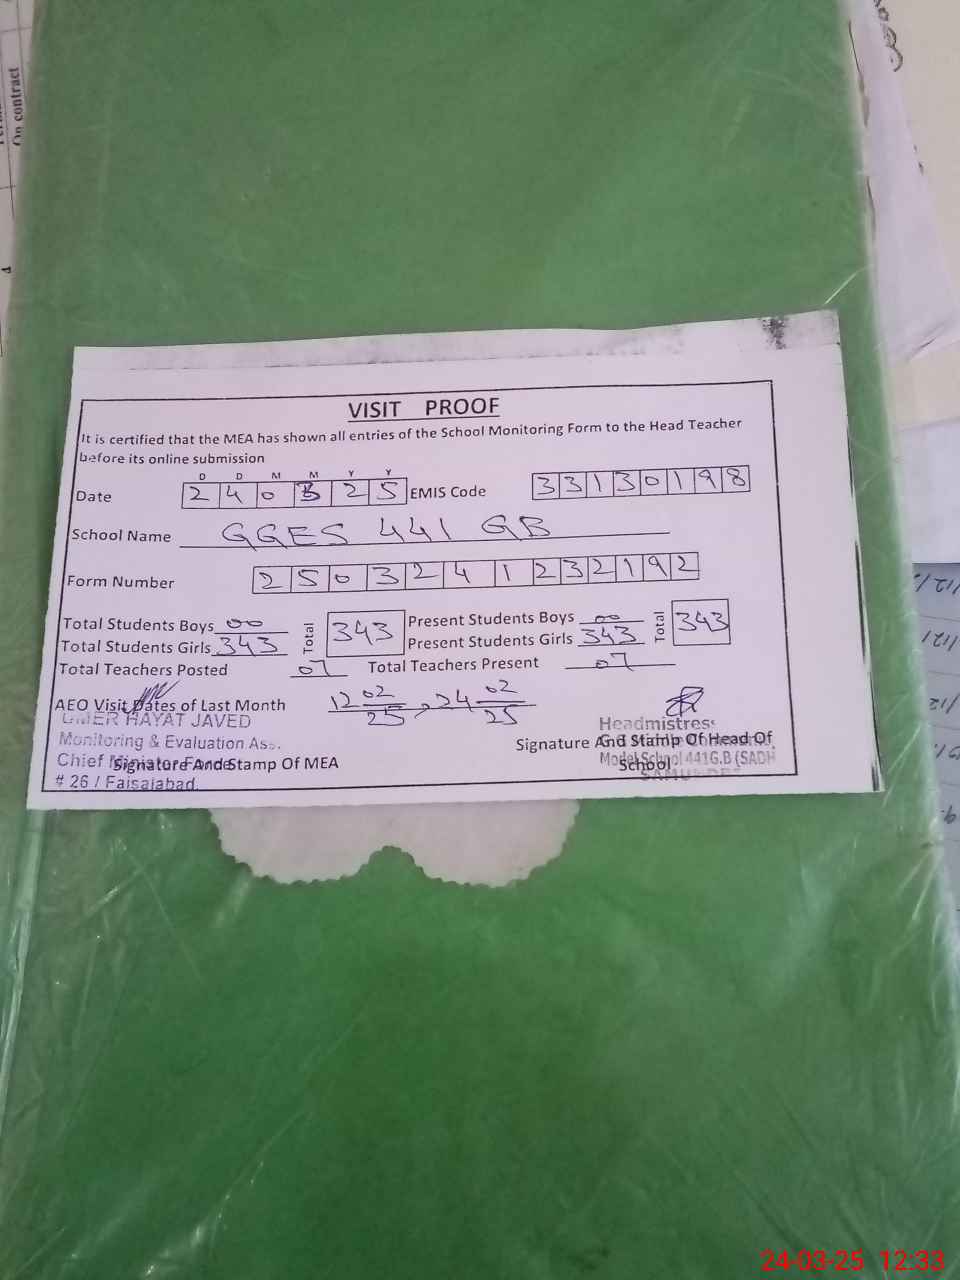 On contract
VISIT PROOF
It is certified that the MEA has shown all entries of the School Monitoring Form to the Head Teacher
before its online submission
D D M M Y Y
Date 2 4 0 3 2 5 EMIS Code 3 3 1 3 0 1 9 8
School Name GGES 441 GB
Form Number 2 5 0 3 2 4 1 2 3 2 1 9 2
Total Students Boys 00 Total 343 Present Students Boys 00 Total 343
Total Students Girls 343 Present Students Girls 343
Total Teachers Posted 07 Total Teachers Present 07
AEO Visit Dates of Last Month 12 02/25, 24 02/25
UMER HAYAT JAVED
Monitoring & Evaluation Ass.
Chief
# 26 / Faisalabad
Signature And Stamp Of MEA
Headmistress
Model School 441G.B (SADH
Signature And Stamp Of Head Of
School
24-03-25 12:33